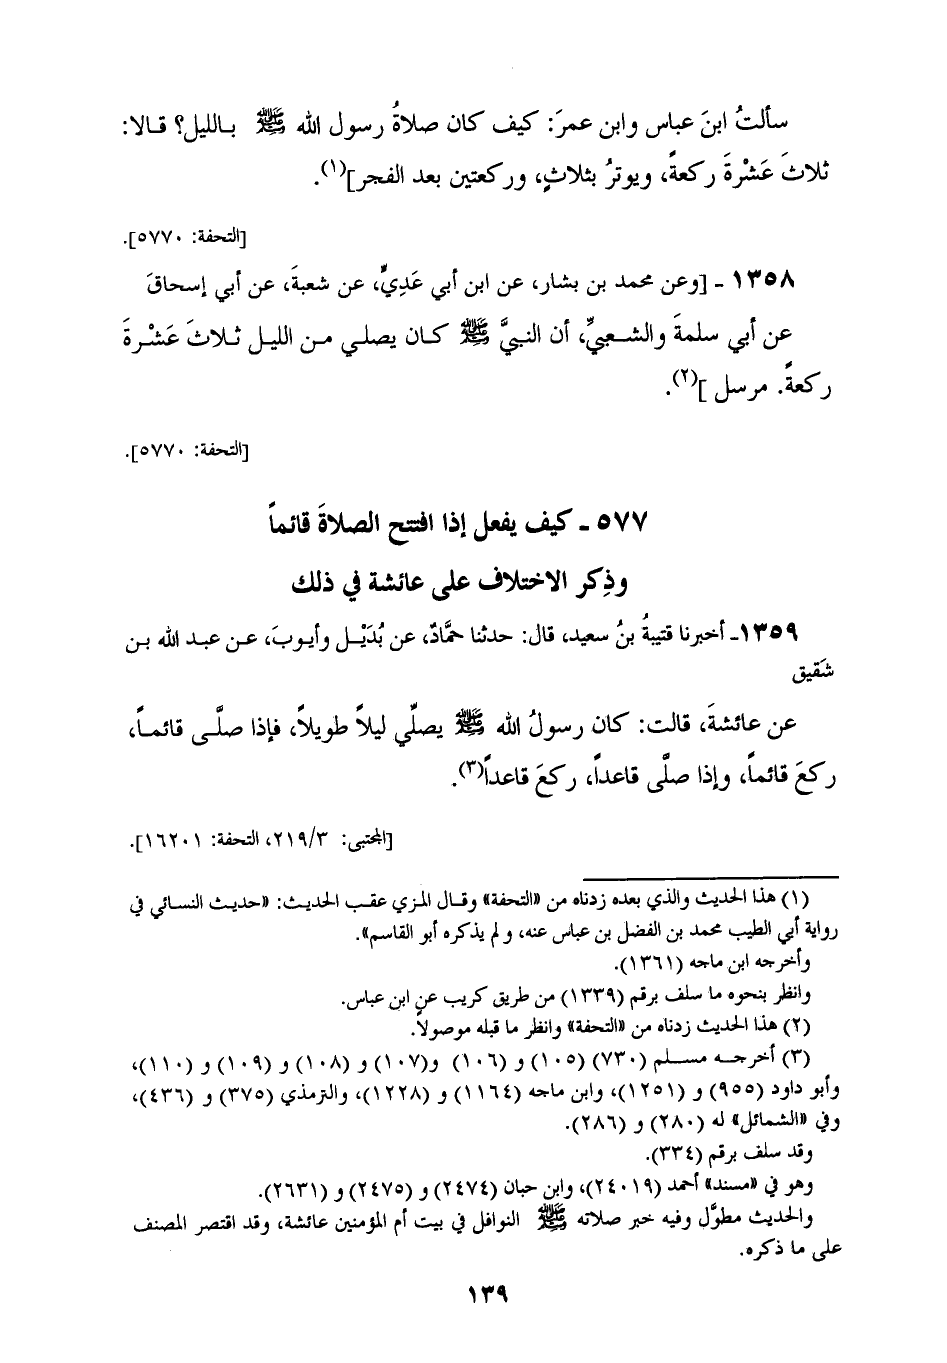 سألتُ ابنَ عباس وابن عمرَ: كيف كان صلاةُ رسول الله ﷺ بالليل؟ قالا:
ثلاثَ عَشْرةَ ركعةً، ويوترُ بثلاثٍ، وركعتين بعد الفجر](١).
[التحفة: ٥٧٧٠].
١٣٥٨ ـ [وعن محمد بن بشار، عن ابن أبي عَدِيٍّ، عن شعبةَ، عن أبي إسحاقَ
عن أبي سلمةَ والشعبيِّ، أن النبيَّ ﷺ كان يصلي من الليل ثلاثَ عَشْرةَ
ركعةً. مرسل ](٢).
[التحفة: ٥٧٧٠].
٥٧٧ ـ كيف يفعل إذا افتتح الصلاةَ قائماً
وذِكر الاختلاف على عائشة في ذلك
١٣٥٩ـ أخبرنا قتيبةُ بنُ سعيد، قال: حدثنا حمَّادٌ، عن بُدَيْل وأيوبَ، عن عبد الله بن
شَقيق
عن عائشةَ، قالت: كان رسولُ الله ﷺ يصلِّي ليلاً طويلاً، فإذا صلَّى قائماً،
ركعَ قائماً، وإذا صلَّى قاعداً، ركعَ قاعداً(٣).
[المجتبى: ٢١٩/٣، التحفة: ١٦٢٠١].
(١) هذا الحديث والذي بعده زدناه من «التحفة» وقال المزي عقب الحديث: «حديث النسائي في
رواية أبي الطيب محمد بن الفضل بن عباس عنه، ولم يذكره أبو القاسم».
وأخرجه ابن ماجه (١٣٦١).
وانظر بنحوه ما سلف برقم (١٣٣٩) من طريق كريب عن ابن عباس.
(٢) هذا الحديث زدناه من «التحفة» وانظر ما قبله موصولاً.
(٣) أخرجه مسلم (٧٣٠) (١٠٥) و (١٠٦) و(١٠٧) و (١٠٨) و (١٠٩) و (١١٠)،
وأبو داود (٩٥٥) و (١٢٥١)، وابن ماجه (١١٦٤) و (١٢٢٨)، والترمذي (٣٧٥) و (٤٣٦)،
وفي «الشمائل» له (٢٨٠) و (٢٨٦).
وقد سلف برقم (٣٣٤).
وهو في «مسند» أحمد (٢٤٠١٩)، وابن حبان (٢٤٧٤) و (٢٤٧٥) و (٢٦٣١).
والحديث مطوَّل وفيه خبر صلاته ﷺ النوافل في بيت أم المؤمنين عائشة، وقد اقتصر المصنف
على ما ذكره.
١٣٩